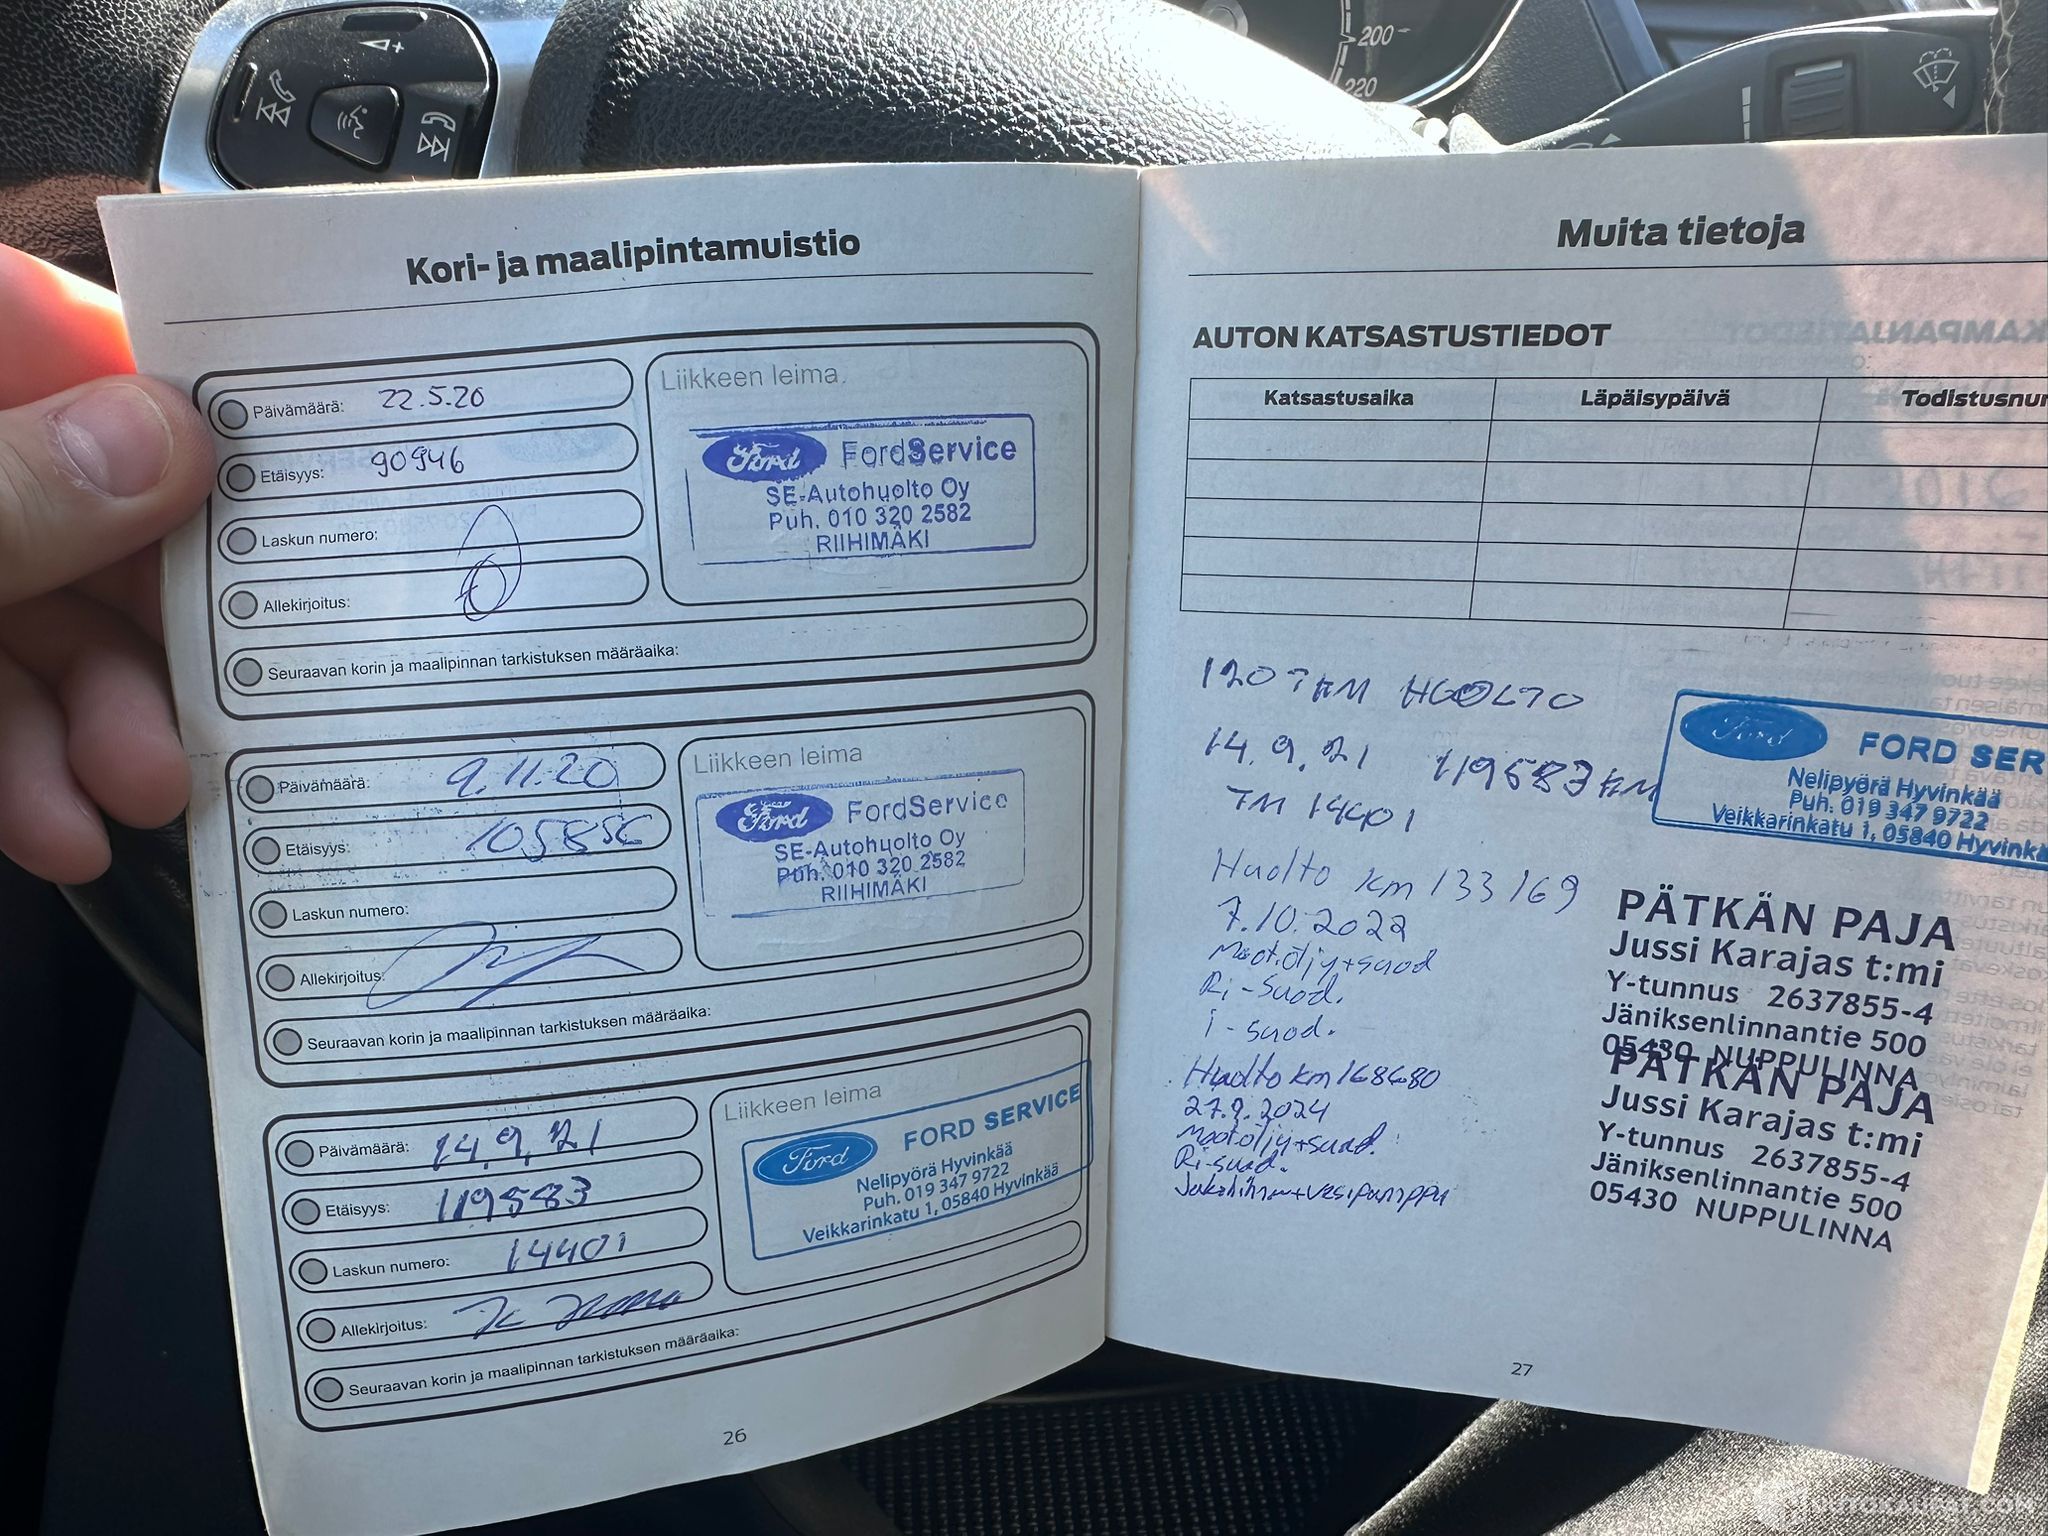 200
220
Kori- ja maalipintamuistio
Päivämäärä: 22.5.20
Etäisyys: 90946
Laskun numero:
Allekirjoitus:
Seuraavan korin ja maalipinnan tarkistuksen määräaika:
Liikkeen leima
Ford FordService
SE-Autohuolto Oy
Puh. 010 320 2582
RIIHIMÄKI
Päivämäärä: 9.11.20
Etäisyys: 105856
Laskun numero:
Allekirjoitus:
Seuraavan korin ja maalipinnan tarkistuksen määräaika:
Liikkeen leima
Ford FordService
SE-Autohuolto Oy
Puh. 010 320 2582
RIIHIMÄKI
Päivämäärä: 14.9.21
Etäisyys: 119583
Laskun numero: 14401
Allekirjoitus:
Seuraavan korin ja maalipinnan tarkistuksen määräaika:
Liikkeen leima
Ford FORD SERVICE
Nelipyörä Hyvinkää
Puh. 019 347 9722
Veikkarinkatu 1, 05840 Hyvinkää
26
Muita tietoja
AUTON KATSASTUSTIEDOT
Katsastusaika Läpäisypäivä Todistusnu
120 TKM HUOLTO
14.9.21 119583 KM
TM 14401
Ford FORD SER
Nelipyörä Hyvinkää
Puh. 019 347 9722
Veikkarinkatu 1, 05840 Hyvinkä
Huolto km 133169
7.10.2022
Moot.öljy+suod
Ri-suod.
i-suod.
PÄTKÄN PAJA
Jussi Karajas t:mi
Y-tunnus 2637855-4
Jäniksenlinnantie 500
05430 NUPPULINNA
Huolto km 168680
27.9.2024
Mootöljy+suod.
Ri-suod.
Jakohihna+vesipumppu
PÄTKÄN PAJA
Jussi Karajas t:mi
Y-tunnus 2637855-4
Jäniksenlinnantie 500
05430 NUPPULINNA
27